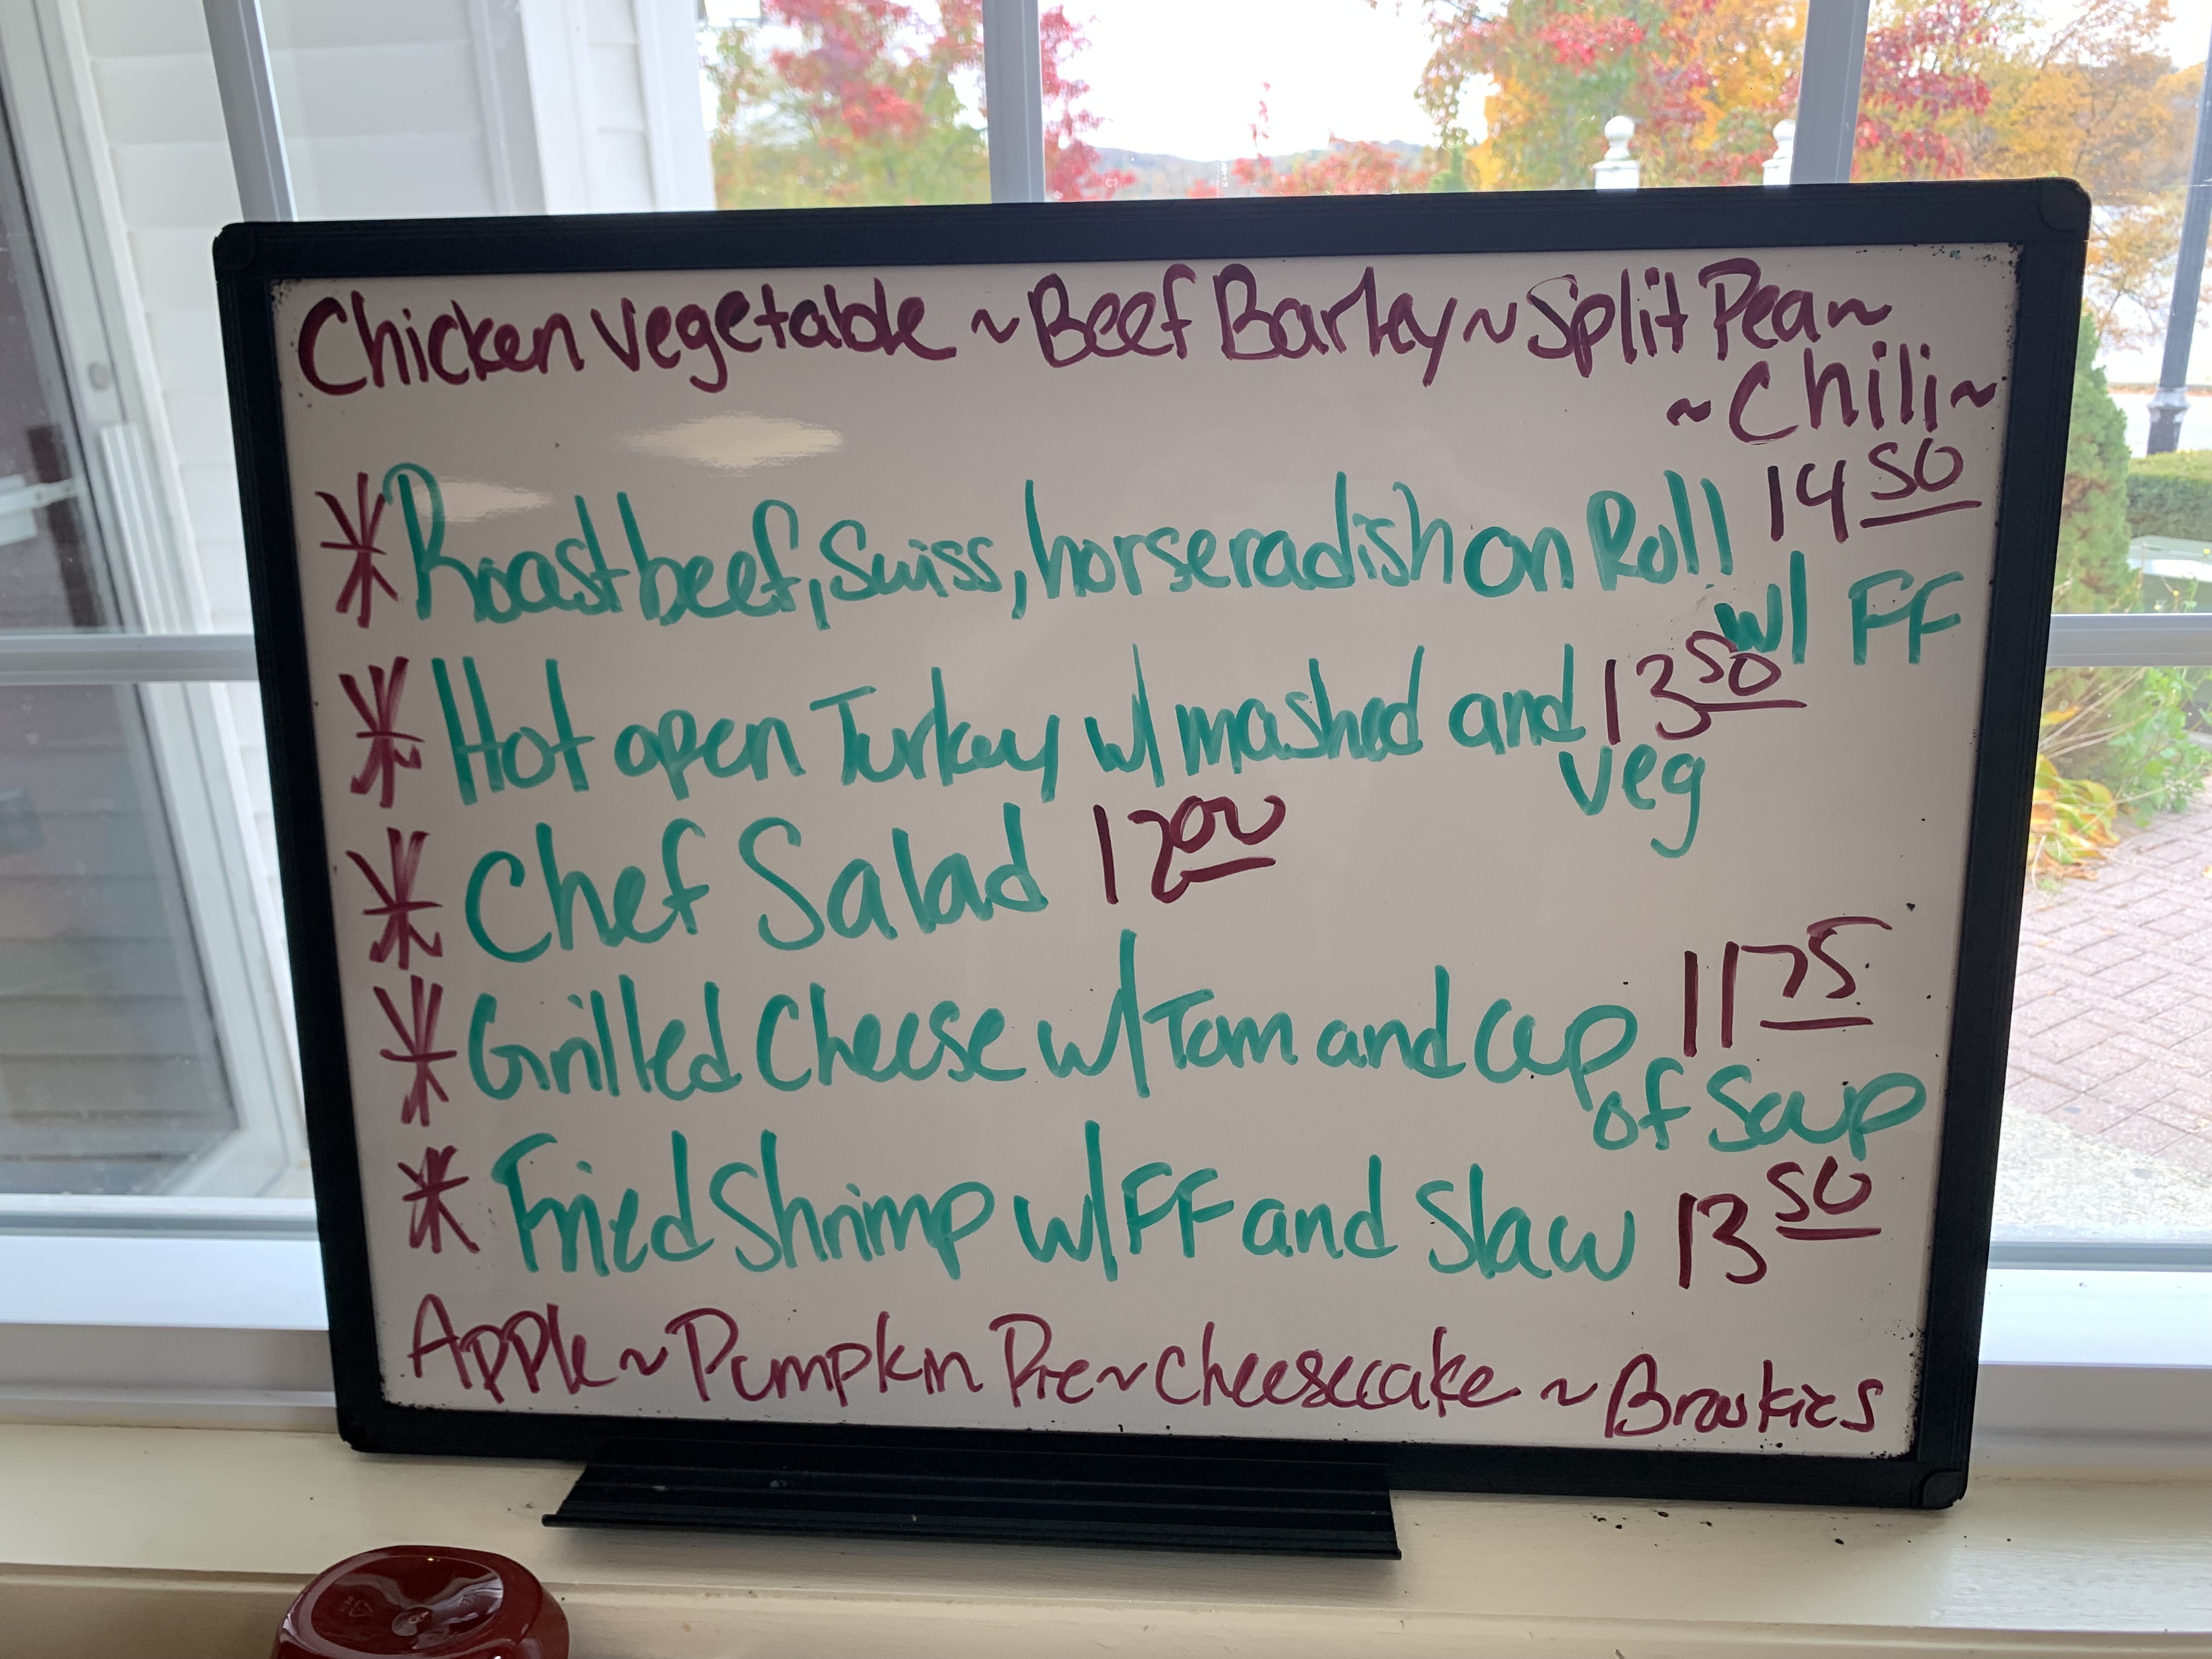 Chicken Vegetable ~ Beef Barley ~ Split Pea ~
~ Chili ~
* Roastbeef, Swiss, horseradish on Roll 14 50
w/ FF
* Hot open Turkey w/ mashed and 13 50
veg
* Chef Salad 12 00
* Grilled Cheese w/ Tom and cup 11 75
of Soup
* Fried Shrimp w/ FF and Slaw 13 50
Apple ~ Pumpkin Pie ~ Cheesecake ~ Brookies